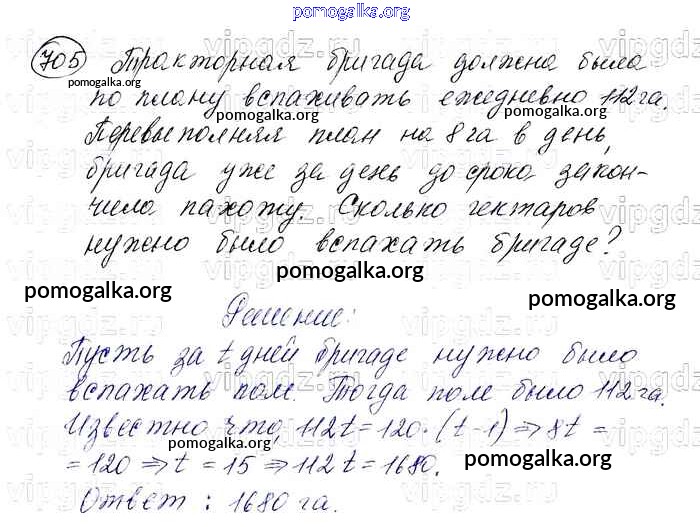 pomogalka.org
705 Тракторная бригада должна была
pomogalka.org
по плану вспахивать ежедневно 112 га.
pomogalka.org
Перевыполняя план на 8 га в день,
бригада уже за день до срока закон-
чила пахоту. Сколько гектаров
нужно было вспахать бригаде?
pomogalka.org
pomogalka.org
pomogalka.org
Решение:
Пусть за t дней бригаде нужно было
вспахать поле. Тогда поле было 112 га.
Известно что, 112t = 120·(t-1) ⇒ 8t =
pomogalka.org
= 120 ⇒ t = 15 ⇒ 112t = 1680.
pomogalka.org
Ответ: 1680 га.